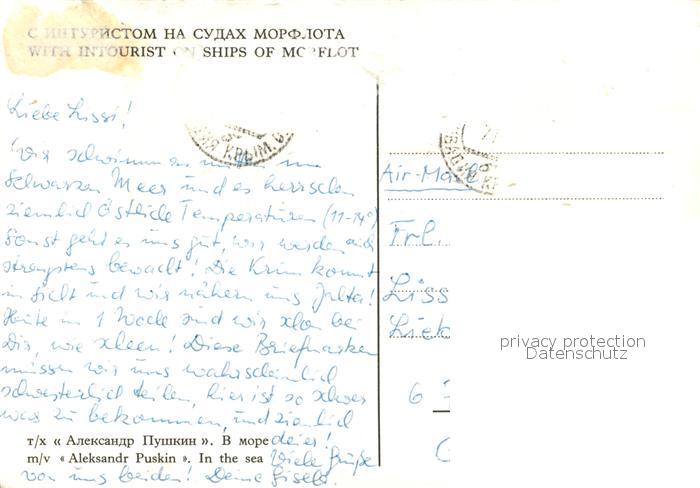 С ИНТУРИСТОМ НА СУДАХ МОРФЛОТА
WITH INTOURIST ON SHIPS OF MORFLOT
Liebe Lissi!
КРЫМ
Wir schwimmen mitten im
Schwarzen Meer und es herrschen
ziemlich östliche Temperaturen (11-14°)
Sonst geht es uns gut, wir werden auch
strengstens bewacht! Die Krim kommt
in Sicht und wir nähern uns Jalta!
Heute in 1 Woche sind wir schon bei
Dir, wie schön! Diese Briefmarken
müssen wir uns wahrscheinlich
schwesterlich teilen, hier ist so schwer
was zu bekommen, und ziemlich
teuer!
Viele Grüße
von uns beiden! Deine Gisela
т/х « Александр Пушкин ». В море
m/v « Aleksandr Puskin ». In the sea
Air-Mail
Frl.
Liss
6
privacy protection
Datenschutz